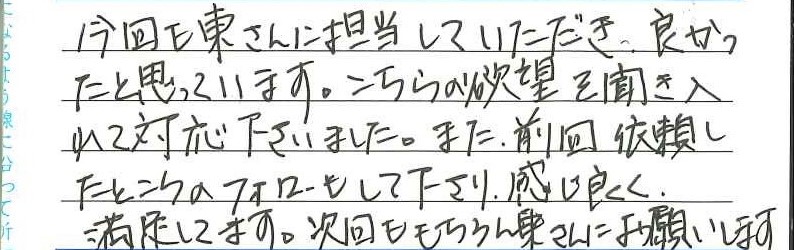 今回も東さんに担当していただき、良かっ
たと思っています。こちらの欲望を聞き入
れて対応下さいました。また、前回依頼し
たところのフォローもして下さり、感じ良く、
満足してます。次回ももちろん東さんにお願いします